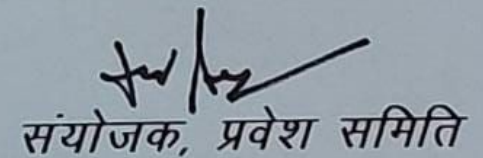 संयोजक, प्रवेश समिति